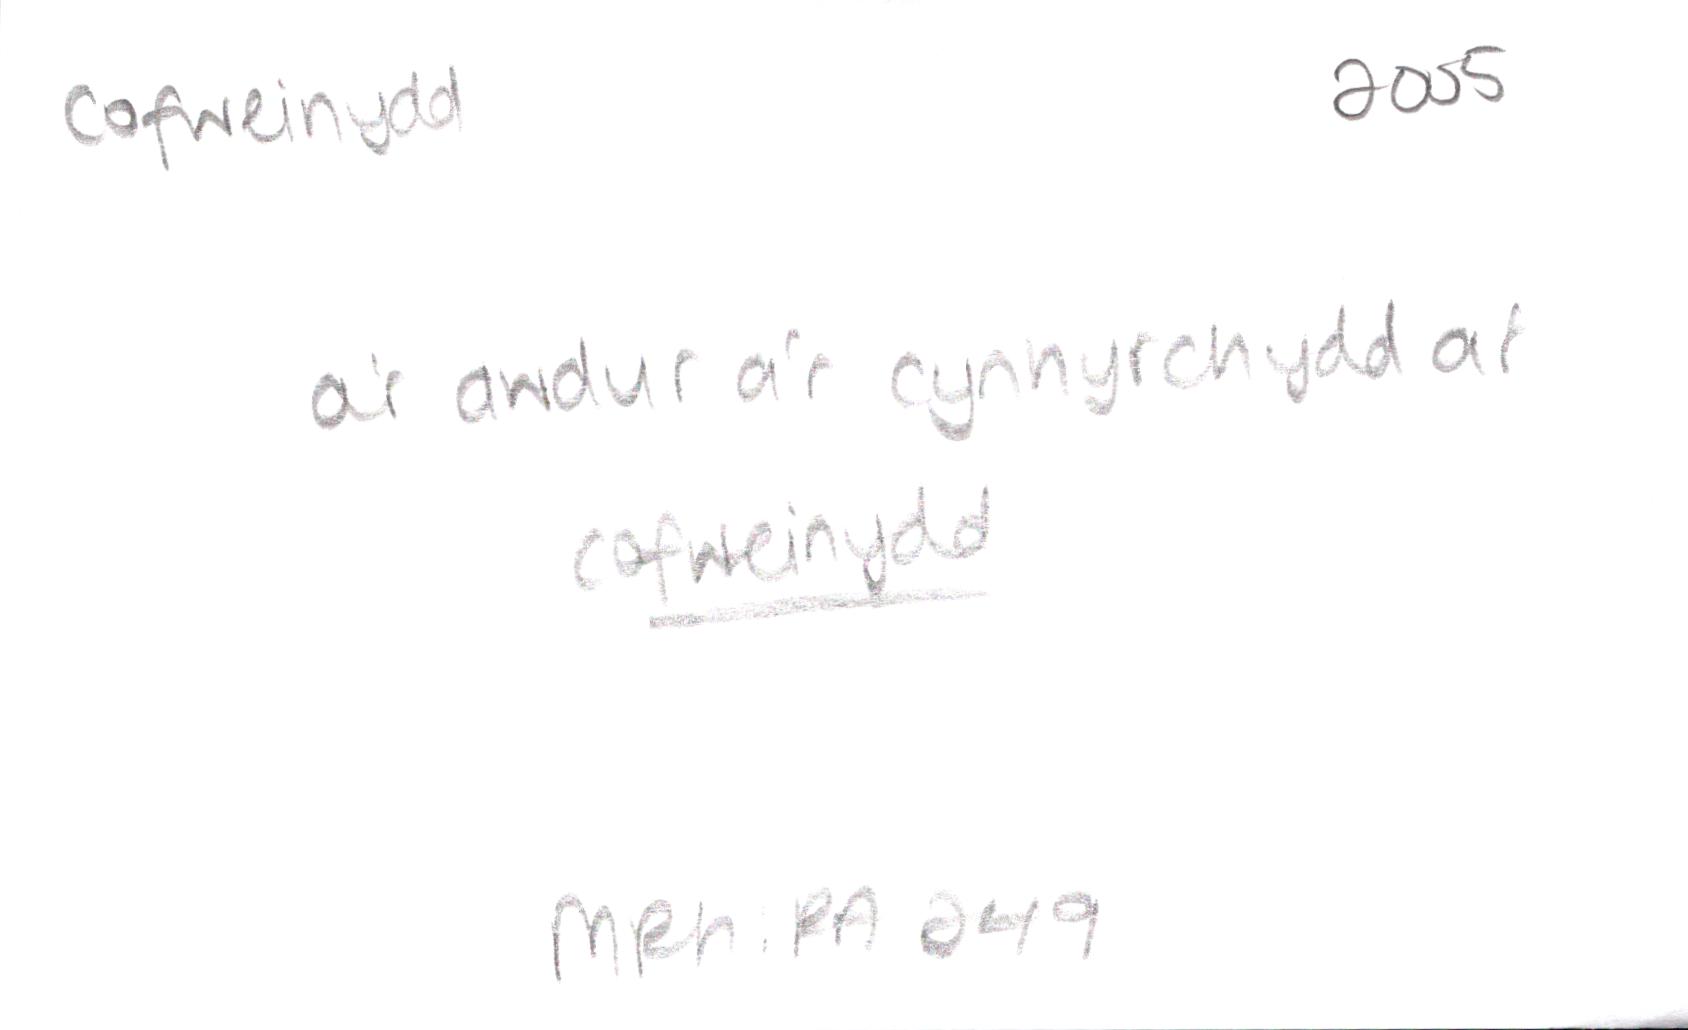 Cofweinydd 2005
a'r awdur a'r cynhyrchydd a'r
cofweinydd
MPh: RA 249